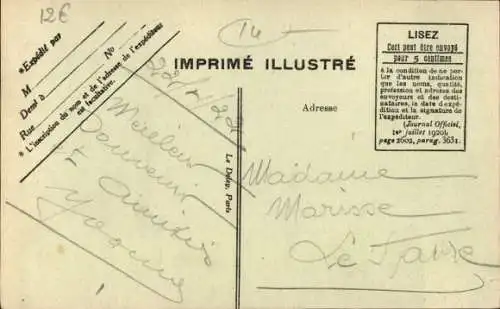 12€
14
*Expédié par
M
N°
Demt à
Rue
* L'inscription du nom et de l'adresse de l'expéditeur
est facultative.
IMPRIMÉ ILLUSTRÉ
Adresse
LISEZ
Ceci peut être envoyé
pour 5 centimes
à la condition de ne por-
ter d'autre indication
que les noms, qualité,
profession et adresse des
envoyeurs et des desti-
nataires, la date d'expé-
dition et la signature de
l'expéditeur.
(Journal Officiel,
1er juillet 1920).
page 2602, parag. 3631.
Meilleur
Souvenir
Amitiés
Le Deley, Paris
Madame
Marisse
Le